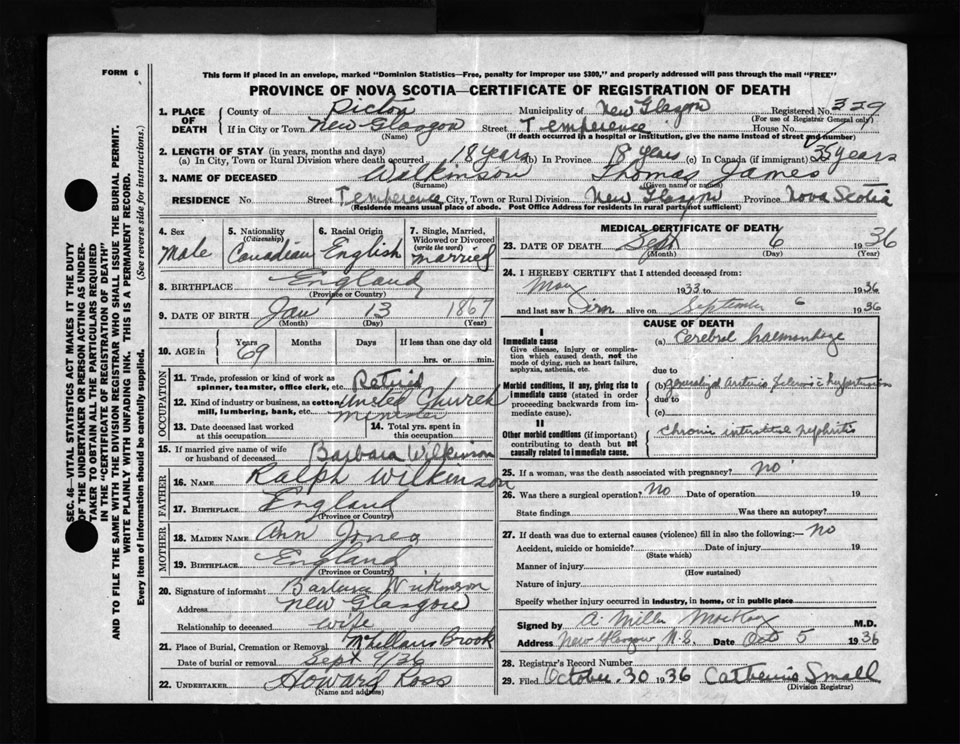 FORM 6
This form if placed in an envelope, marked "Dominion Statistics—Free, penalty for improper use $300," and properly addressed will pass through the mail "FREE"
PROVINCE OF NOVA SCOTIA—CERTIFICATE OF REGISTRATION OF DEATH
1. PLACE OF DEATH County of Pictou Municipality of New Glasgow Registered No. 329
(For use of Registrar General only)
If in City or Town New Glasgow Street Temperence House No.
(Name) (If death occurred in a hospital or institution, give the name instead of street and number)
2. LENGTH OF STAY (in years, months and days)
(a) In City, Town or Rural Division where death occurred 18 years (b) In Province 18 years (c) In Canada (if immigrant) 35 years
3. NAME OF DECEASED Wilkinson Thomas James
(Surname) (Given name or names)
RESIDENCE No. Street Temperence City, Town or Rural Division New Glasgow Province Nova Scotia
(Residence means usual place of abode. Post Office Address for residents in rural parts not sufficient)
4. Sex 5. Nationality (Citizenship) 6. Racial Origin 7. Single, Married, Widowed or Divorced (write the word)
Male Canadian English Married
8. BIRTHPLACE England
(Province or Country)
9. DATE OF BIRTH Jan 13 1867
(Month) (Day) (Year)
10. AGE in Years Months Days If less than one day old
69 hrs. or min.
OCCUPATION
11. Trade, profession or kind of work as spinner, teamster, office clerk, etc. Retired
12. Kind of industry or business, as cotton mill, lumbering, bank, etc. United Church Minister
13. Date deceased last worked at this occupation 14. Total yrs. spent in this occupation
15. If married give name of wife or husband of deceased Barbara Wilkinson
FATHER
16. NAME Ralph Wilkinson
17. BIRTHPLACE England
(Province or Country)
MOTHER
18. MAIDEN NAME Ann Jones
19. BIRTHPLACE England
(Province or Country)
20. Signature of informant Barbara Wilkinson
Address New Glasgow
Relationship to deceased Wife
21. Place of Burial, Cremation or Removal McLellans Brook
Date of burial or removal Sept 9/36
22. UNDERTAKER Howard Ross
(Name and address)
MEDICAL CERTIFICATE OF DEATH
23. DATE OF DEATH Sept 6 1936
(Month) (Day) (Year)
24. I HEREBY CERTIFY that I attended deceased from:
May 1933 to 1936
and last saw him alive on September 6 1936
CAUSE OF DEATH
I
Immediate cause
Give disease, injury or complication which caused death, not the mode of dying, such as heart failure, asphyxia, asthenia, etc.
(a) Cerebral haemorrhage
due to
Morbid conditions, if any, giving rise to immediate cause (stated in order proceeding backwards from immediate cause).
(b) generalized Arterio Sclerosis & hypertension
due to
(c)
II
Other morbid conditions (if important) contributing to death but not causally related to immediate cause.
Chronic interstitial nephritis
25. If a woman, was the death associated with pregnancy? no
26. Was there a surgical operation? No Date of operation 19
State findings Was there an autopsy?
27. If death was due to external causes (violence) fill in also the following:— no
Accident, suicide or homicide? Date of injury 19
(State which)
Manner of injury
(How sustained)
Nature of injury
Specify whether injury occurred in industry, in home, or in public place
Signed by A. Miller MacKay M.D.
Address New Glasgow, N.S. Date Oct 5 1936
28. Registrar's Record Number
29. Filed October 30 1936 Catherine Small
(Division Registrar)
SEC. 46—VITAL STATISTICS ACT MAKES IT THE DUTY
OF THE UNDERTAKER OR PERSON ACTING AS UNDER-
TAKER TO OBTAIN ALL THE PARTICULARS REQUIRED
IN THE "CERTIFICATE OF REGISTRATION OF DEATH"
AND TO FILE THE SAME WITH THE DIVISION REGISTRAR WHO SHALL ISSUE THE BURIAL PERMIT.
WRITE PLAINLY WITH UNFADING INK. THIS IS A PERMANENT RECORD.
Every item of Information should be carefully supplied. (See reverse side for instructions.)